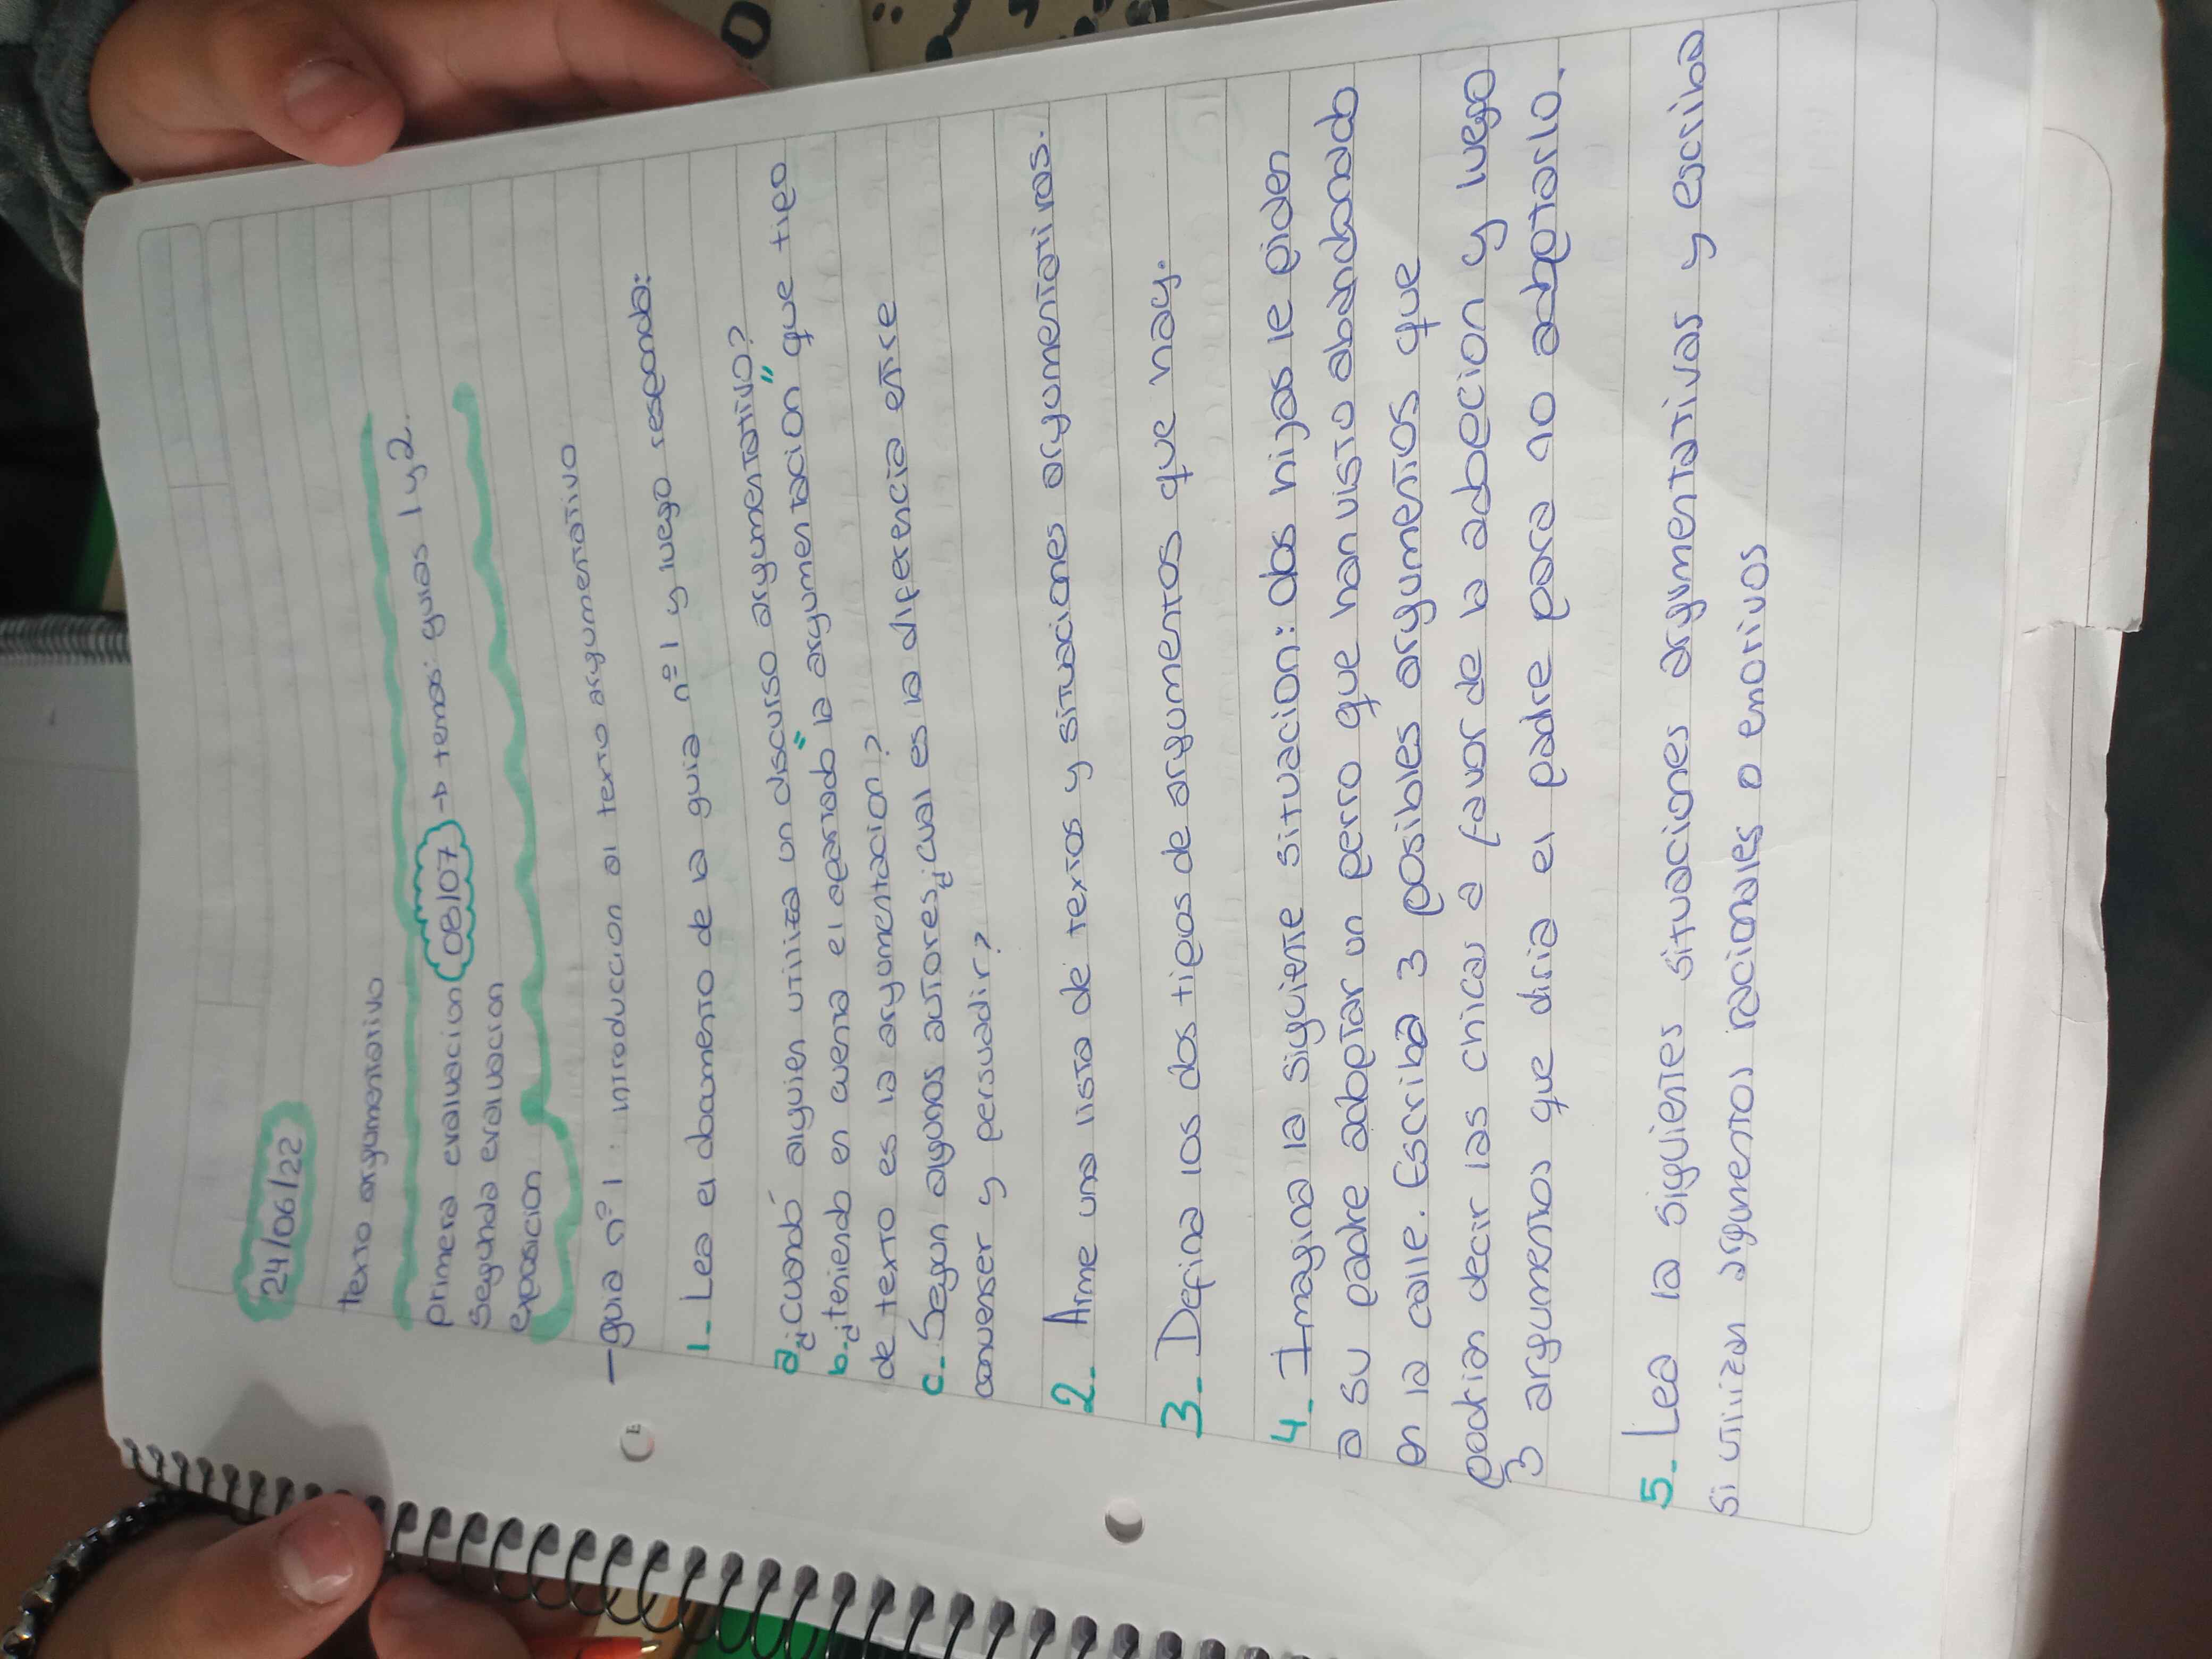 24/06/22
texto argumentativo
primera evaluacion 08/07 → temas: guias 1 y 2.
Segunda evaluacion
exposicion
— guia n° 1 : introduccion al texto argumentativo
1- Lea el documento de la guia n° 1 y luego responda:
a. ¿Cuando alguien utiliza un discurso argumentativo?
b. ¿teniendo en cuenta el apartado "la argumentacion" que tipo
de texto es la argumentacion?
c- Segun algunos autores ¿cual es la diferencia entre
convenser y persuadir?
2- Arme una lista de textos y situaciones argumentativas.
3- Defina los dos tipos de argumentos que hay.
4- Imagina la siguiente situacion: dos hijas le piden
a su padre adoptar un perro que han visto abandonado
en la calle. Escriba 3 posibles argumentos que
podrian decir las chicas a favor de la adopcion y luego
3 argumentos que diria el padre para no adoptarlo.
5- Lea la siguientes situaciones argumentativas y escriba
si utilizan argumentos racionales o emotivos